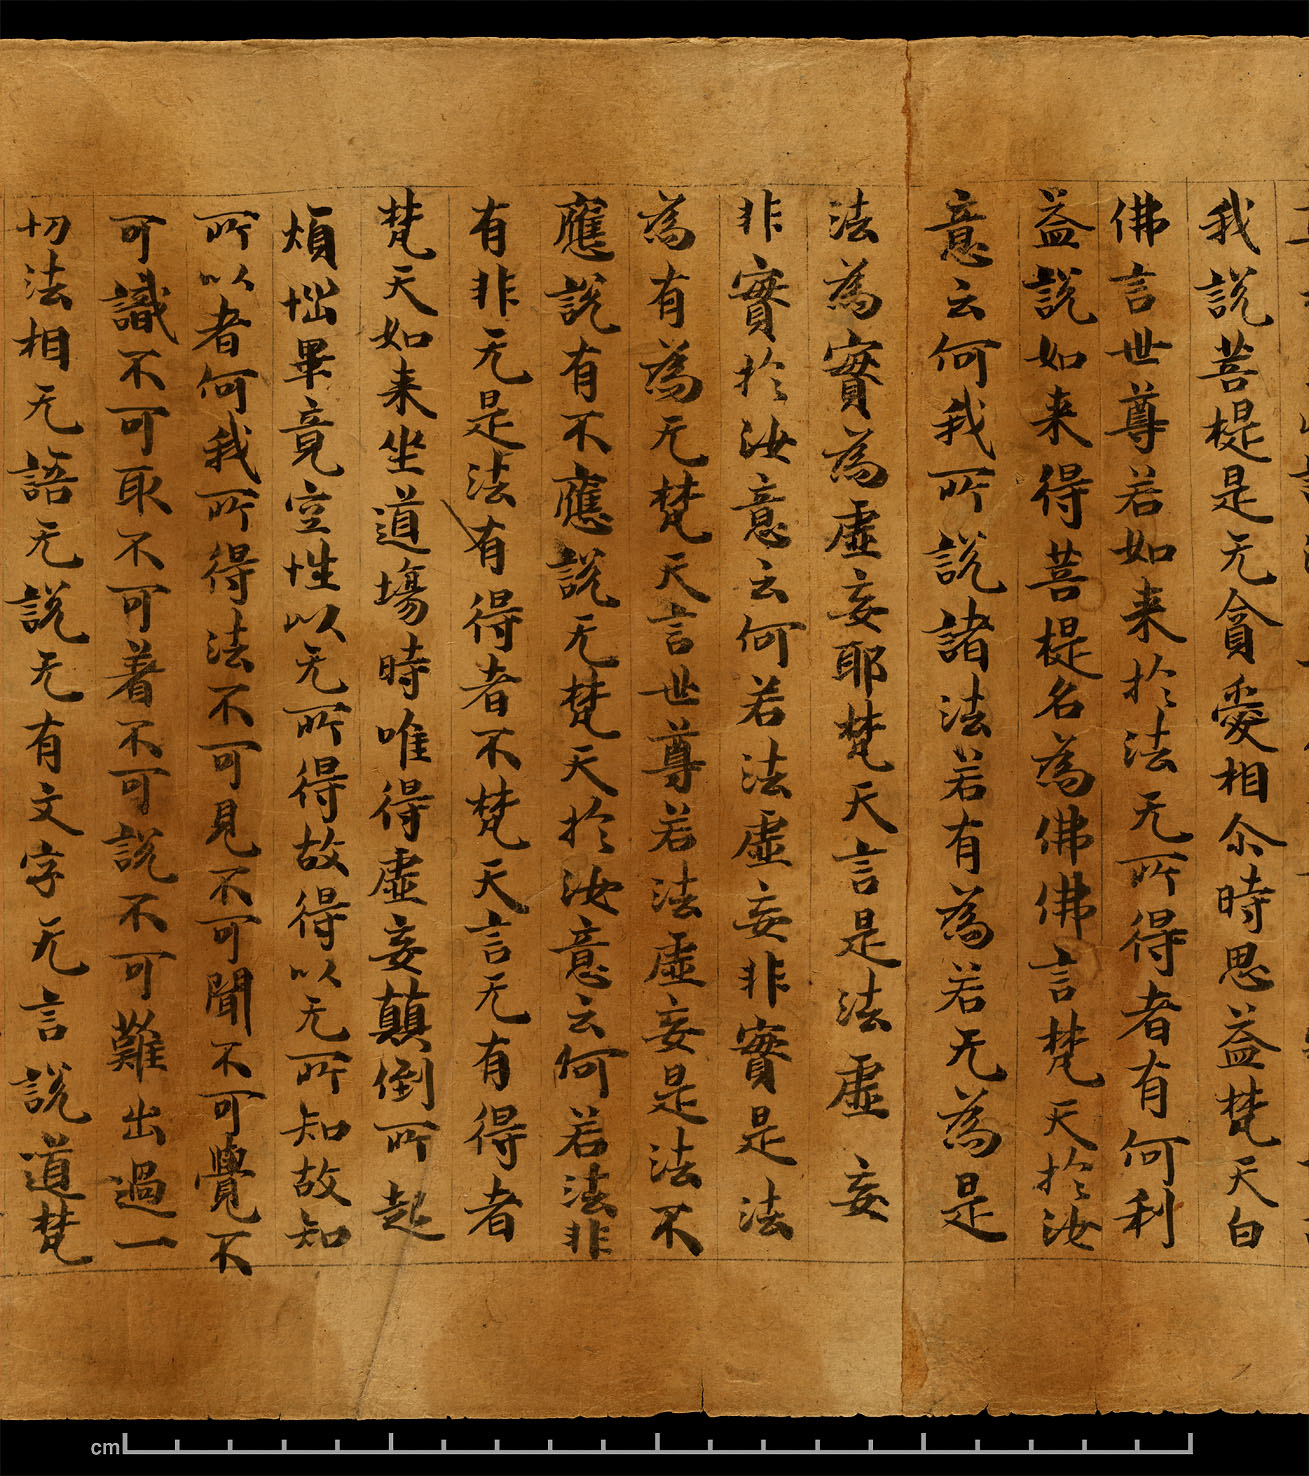 我說菩提是无貪愛相尒時思益梵天白
佛言世尊若如来於法无所得者有何利
益說如来得菩提名為佛佛言梵天於汝
意云何我所說諸法若有為若无為是
法為實為虛妄耶梵天言是法虛妄
非實於汝意云何若法虛妄非實是法
為有為无梵天言世尊若法虛妄是法不
應說有不應說无梵天於汝意云何若法非
有非无是法有得者不梵天言无有得者
梵天如来坐道場時唯得虛妄顛倒所起
煩惱畢竟空性以无所得故得以无所知故知
所以者何我所得法不可見不可聞不可覺不
可識不可取不可著不可說不可難出過一
切法相无語无說无有文字无言說道梵